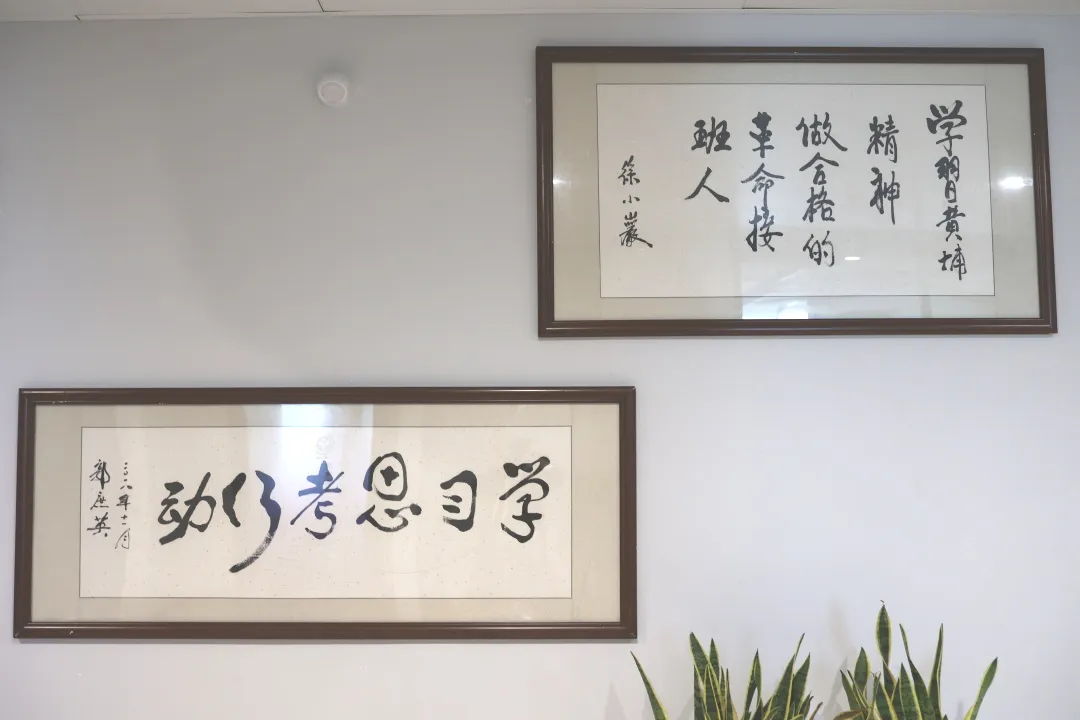 学习黄埔
精神
做合格的
革命接
班人
徐小岩
学习思考行动
二〇一八年十一月
郭庶英